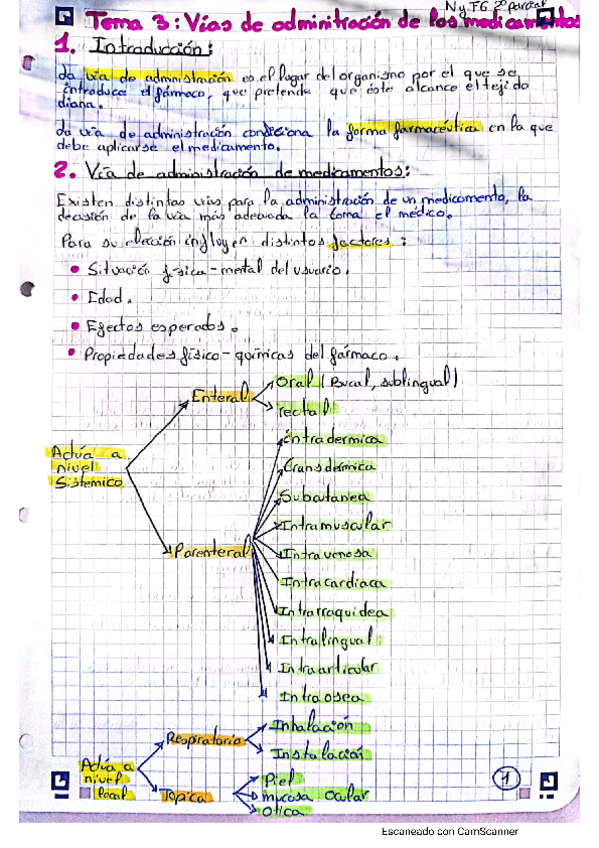 N y FG 2º parcial
Tema 3: Vías de adminitración de los medicamentos
1. Introducción:
La vía de administración es el lugar del organismo por el que se
introduce el fármaco, que pretende que éste alcance el tejido
diana.
La vía de administración condiciona la forma farmacéutica en la que
debe aplicarse el medicamento.
2. Vía de administración de medicamentos:
Existen distintas vías para la administración de un medicamento, la
decisión de la vía más adecuada la toma el médico.
Para su elección influyen distintos factores:
• Situación física-mental del usuario.
• Edad.
• Efectos esperados.
• Propiedades físico-químicas del fármaco.
Actúa a nivel Sistemico
Enteral
Oral (Bucal, sublingual)
rectal
Parenteral
intradermica
transdérmica
Subcutanea
Intramuscular
Intravenosa
Intracardiaca
Intrarraquidea
Intralingual
Intraarticular
Intraosea
Actúa a nivel local
Respiratoria
Inhalación
Instalación
Topica
Piel
mucosa ocular
otica
1
Escaneado con CamScanner